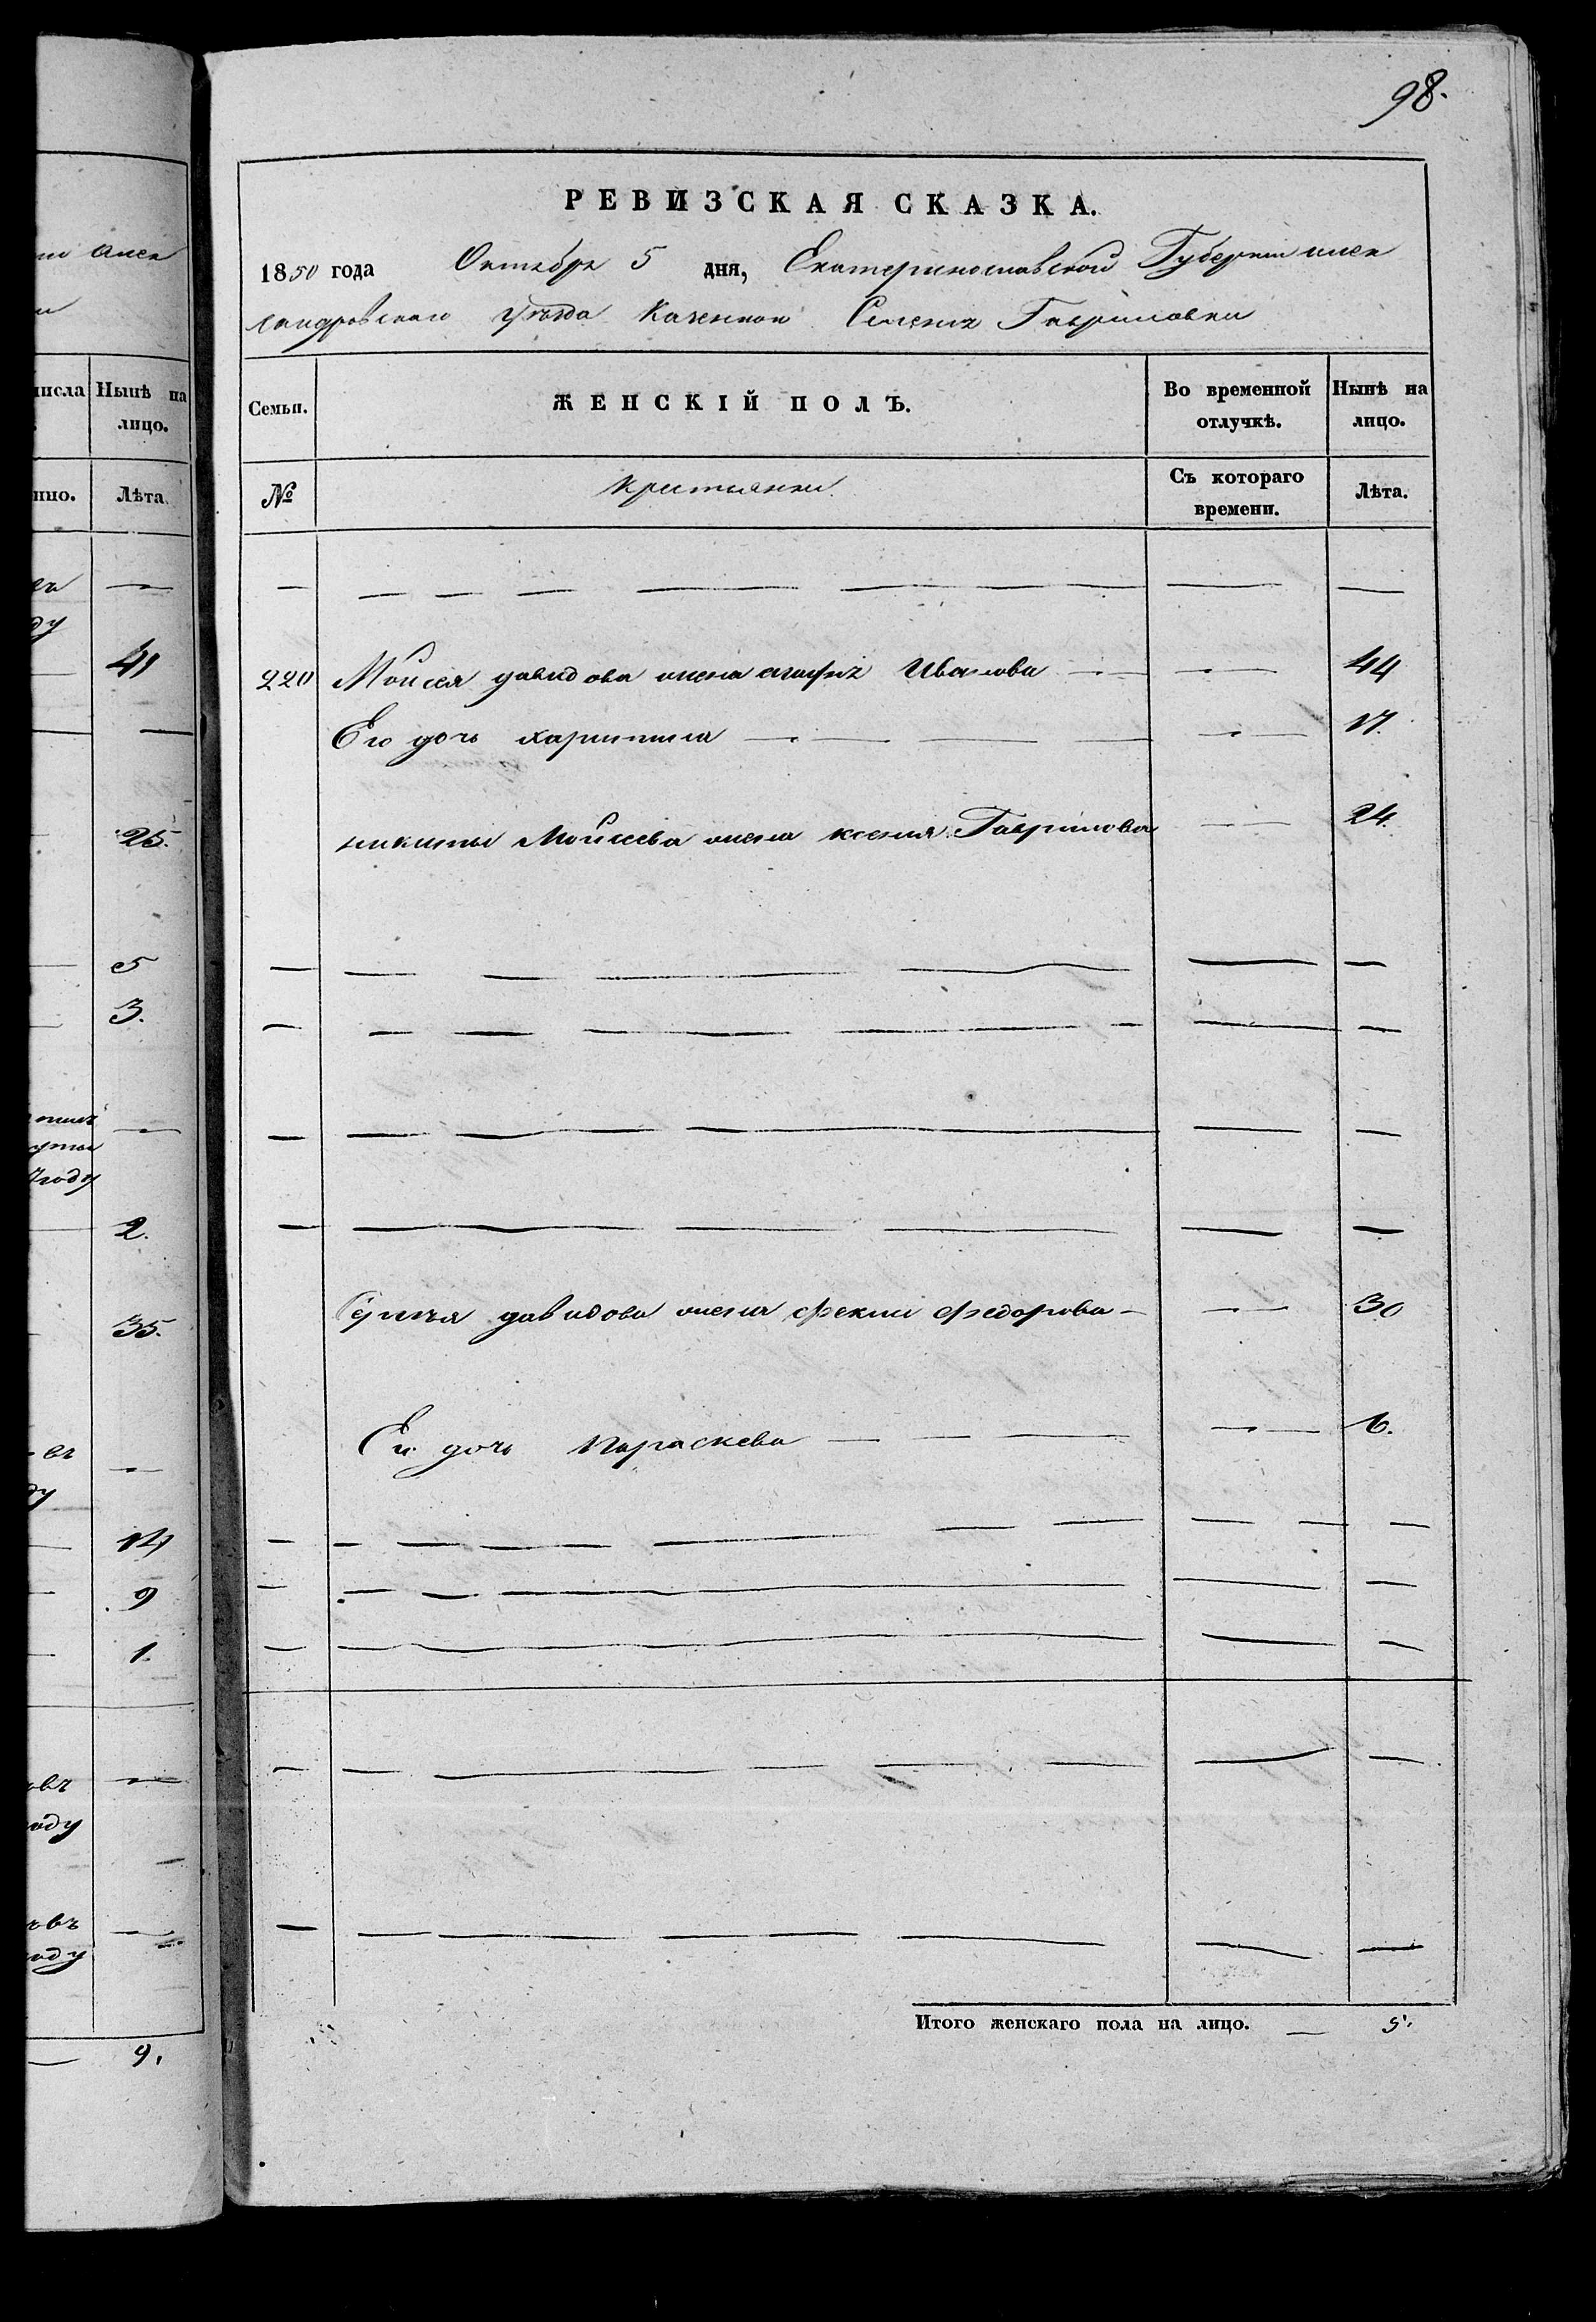 98.
РЕВИЗСКАЯ СКАЗКА.
1850 года Октября 5 дня, Екатеринославской Губернии алек
сандровскаго уѣзда Казенной Селенія Гавриловки
числа Нынѣ на лицо.
Семьи. ЖЕНСКІЙ ПОЛЪ. Во временной отлучкѣ. Нынѣ на лицо.
Лѣта.
№ крестьянки. Съ котораго времени. Лѣта.
41
220 Мойсея давидова жена агафія Иванова 44
Его дочь харитина 17.
25.
никиты Мойсеева жена ксенія Гаврилова 24.
5
3.
году
2.
Сергѣя давидова жена фекла федорова 30
35.
Его дочь параскева 6.
14
9
1
году
году
Итого женскаго пола на лицо. 5.
9.